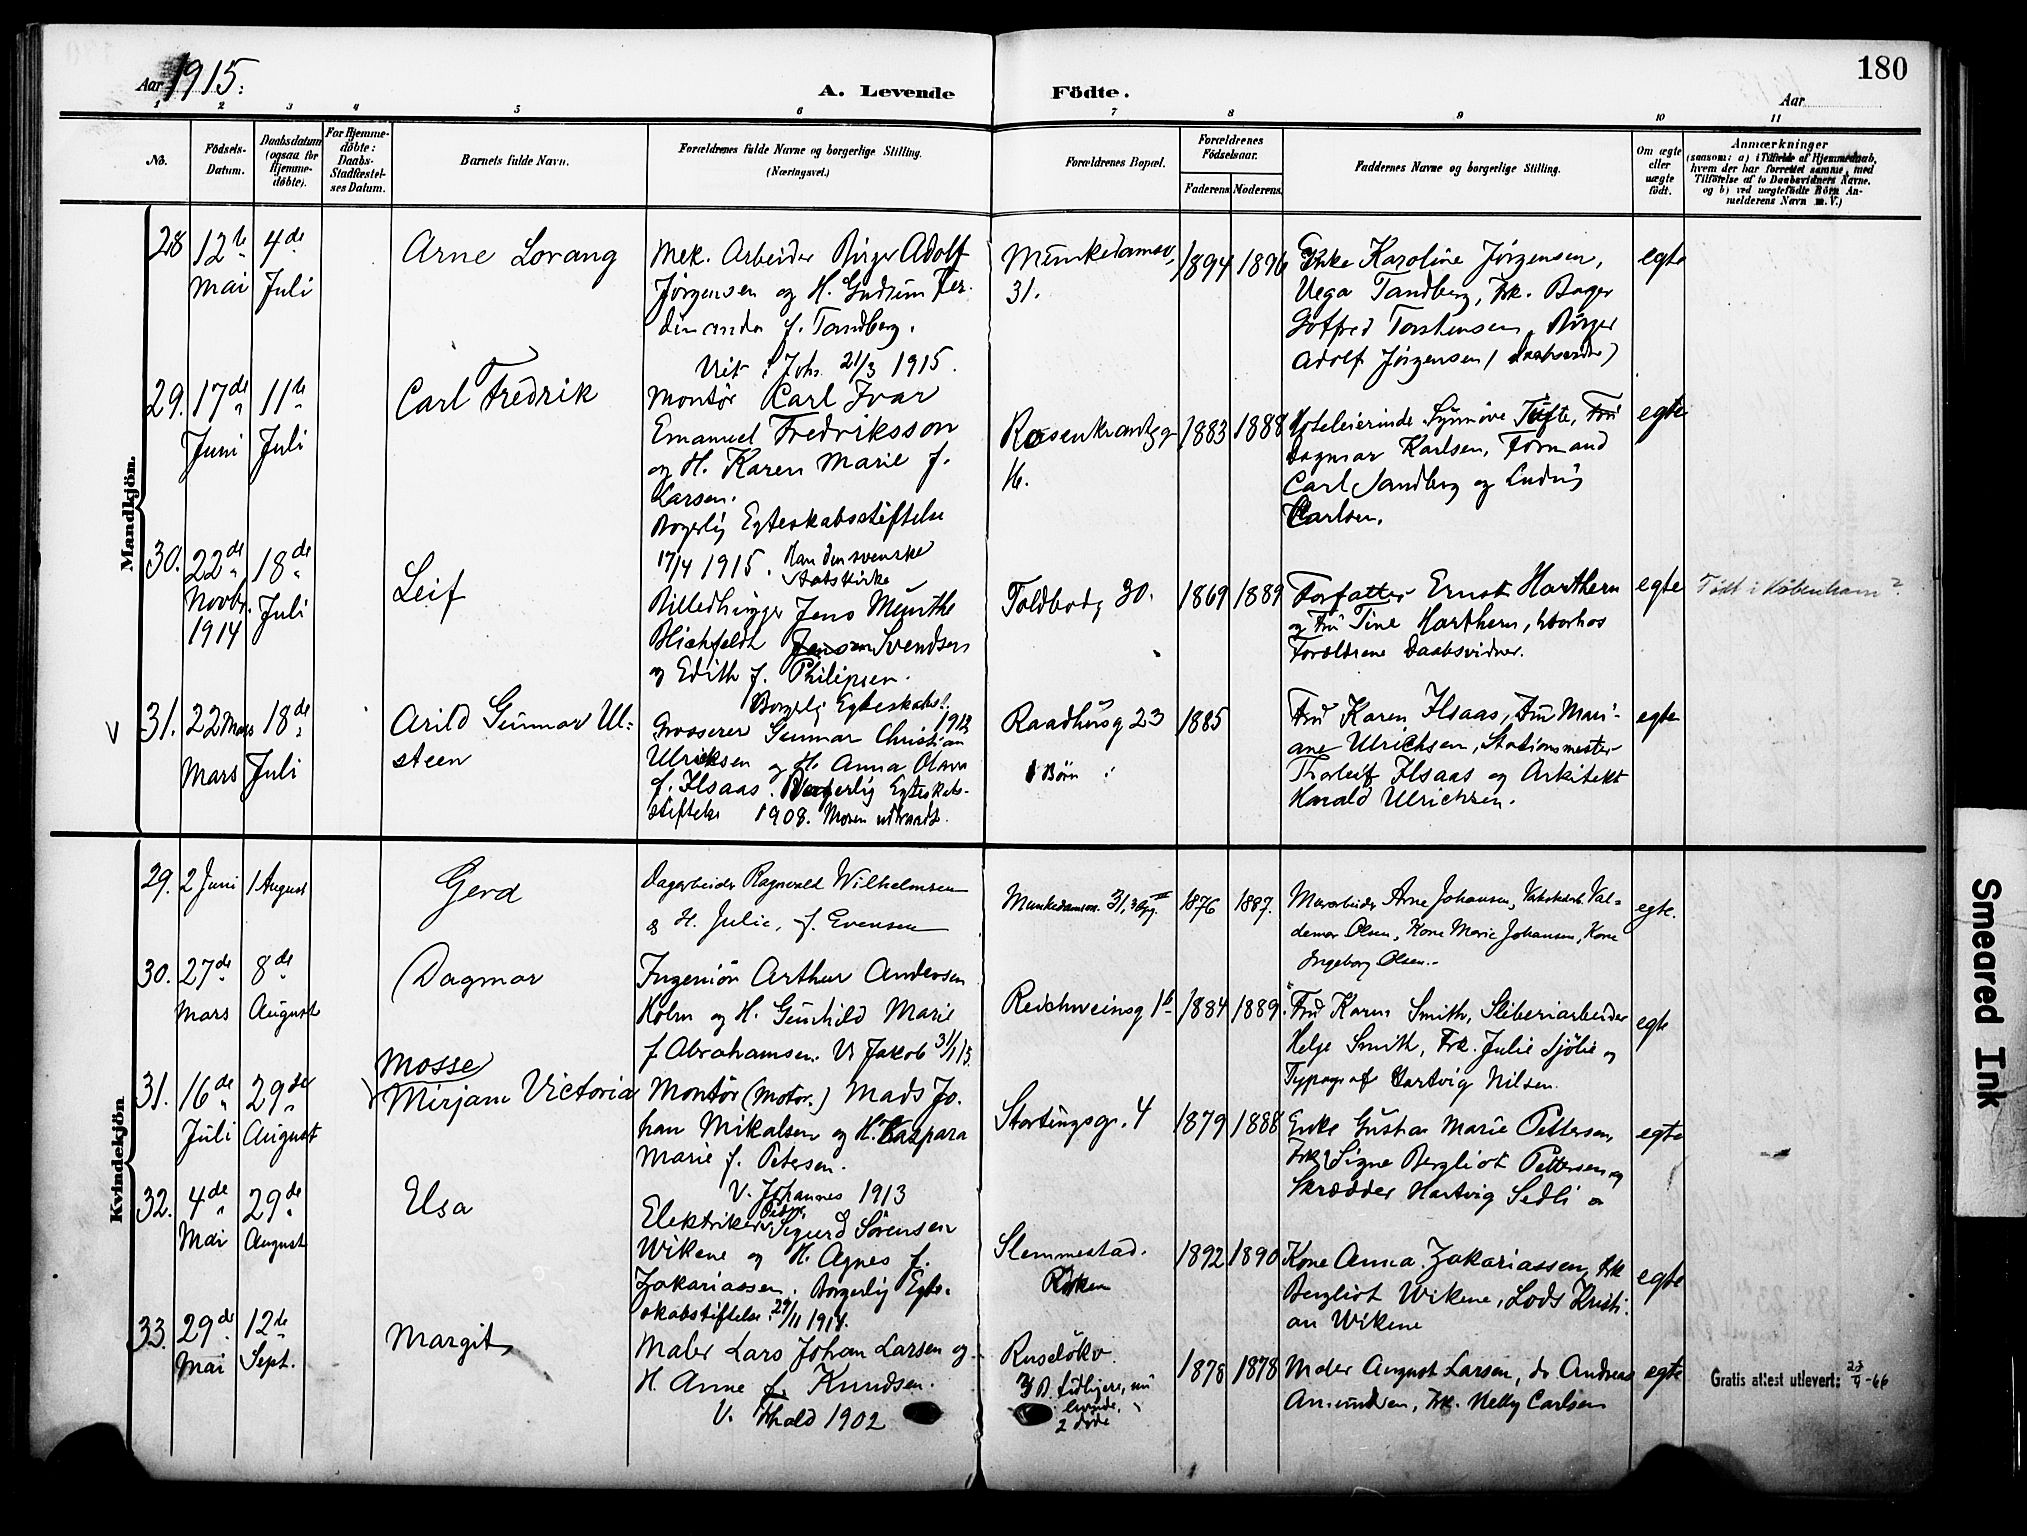 Aar 1915.
A. Levende Födte.
180
Aar
1 2 3 4 5 6 7 8 9 10 11
No.
Födsels-Datum.
Daabsdatum (ogsaa for Hjemme-döbte).
For Hjemme-döbte: Daabs-Stadfæstel-ses Datum.
Barnets fulde Navn.
Forældrenes fulde Navne og borgerlige Stilling. (Næringsvei.)
Forældrenes Bopæl.
Forældrenes Födselsaar.
Faderens Moderens.
Faddernes Navne og borgerlige Stilling.
Om ægte eller uægte födt.
Anmærkninger
(saasom: a) i Tilfælde af Hjemmedaab,
hvem der har forrettet samme, med
Tilföielse af to Daabsvidners Navne.
og b) ved uægtefödte Börn An-
melderens Navn m. V.)
Mandkjön.
28 12te Mai
4de Juli
Arne Lorang
Mek. Arbeider Birger Adolf
Jørgensen og H. Gudrun Fer-
dinanda f. Tandberg.
1915.
Munkedamsv
31.
1894 1896
Enke Karoline Jørgensen,
Vega Tandberg, Frk. Bager
Gotfred Torstensen, Birger
Adolf Jørgensen (Daabsvidne)
egte
29. 17de Juni
11te Juli
Carl Fredrik
Montør Karl Ivar
Emanuel Fredriksson
og H. Karen Marie f.
Larsen.
Borgerlig Egteskabsstiftelse
17/4 1915. Han den svenske
Statskirke
Rosenkrantzg
16.
1883 1888
Hoteleierinde Synnøve Tufte, Fru
Dagmar Karlsen, Formand
Carl Sandberg og Ludvig
Carlsen.
egte
30. 22de Novbr. 1914
18de Juli
Leif
Billedhugger Jens Munthe
Svendsen
og Edith f. Philipsen.
Borgerlig Egteskabs. 1913
Toldbodg 30.
1869 1889
Forfatter Ernst Harthern
og Fru Tine Harthern, hvorhos
Forældrene Daabsvidner.
egte
Født i København?
31. 22 Mars
Mars
18de Juli
Arild Gunnar Ul-
steen
Grosserer Gunnar Christian
Ulriksen og H. Anna Olava
f. Ilsaas. Borgerlig Egteskabs-
stiftelse 1908. Moren udtraadt.
Raadhusg 23
1 Børn
1885
Fru Karen Ilsaas, Fru Mari-
ane Ulrichsen, Stationsmester
Thorleif Ilsaas og Arkitekt
Harald Ulrichsen.
egte
Kvindekjön
29. 2 Juni
1 August
Gerd
Dagarbeider Ragnvald Wilhelmsen
og H. Julie, f. Evensen
Munkedamsv. 31, 3 opg. II
1876 1887.
Murarbeider Arne Johansen, Val-
demar Olsen, Kone Marie Johansen, Kone
Ingeborg Olsen.
egte.
30. 27de Mars
8de August
Dagmar
Ingeniør Arthur Andersen
Holm og H. Gunhild Marie
f. Abrahamsen. V. Jakob 31/1 15.
Reichweinsg 1b
1884 1889.
Fru Karen Smith, Sliberiarbeider
Helge Smith, Frk. Julie Sjølie og
Typograf Hartvig Nilsen.
egte
31. 16de Juli
29de August
Mosse
Mirjam Victoria
Montør (Motor.) Mads Jo-
han Mikalsen og H. Kaspara
Marie f. Petersen.
V. Johannes 1913
Stortingsgr. 4
1879 1888
Enke Gusta Marie Pettersen,
Frk. Signe Bergliot Pettersen og
Skrædder Hartvig Sedli
egte
32. 4de Mai
29de August
Elsa
Elektriker Sigurd Sørensen
Wikene og H. Agnes f.
Zakariassen. Borgerlig Egte-
skabstiftelse 29/11 1914.
Slemmestad.
Røken
1892 1890
Kone Anna Zakariassen, Frk
Bergliot Wikene, Lods Kristi-
an Wikene
egte
33. 29de Mai
12te Sept.
Margit
Maler Lars Johan Larsen og
H. Anne f. Knudsen.
V. 1902
Ruseløkv.
3 B. tidligere, nu
levende,
2 døde
1878 1878
Maler August Larsen, do Andreas
Amundsen, Frk. Nelly Carlsen
egte
Gratis attest utlevert: 23/9-66
Smeared Ink